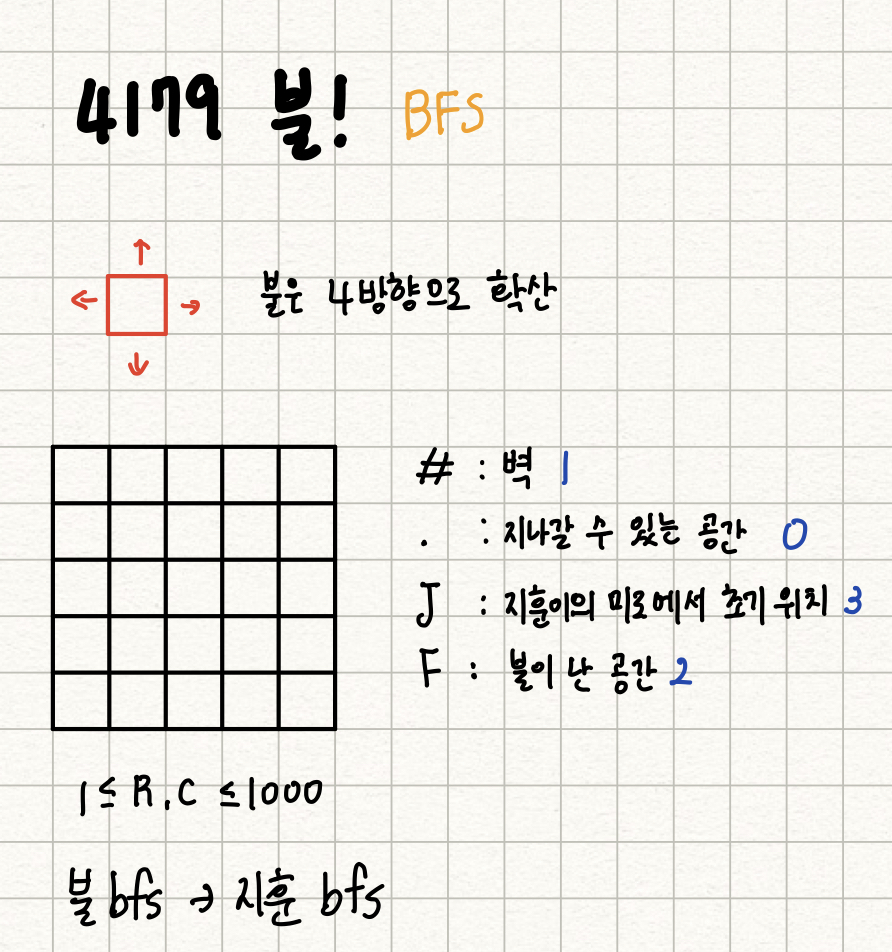 4179 불! BFS
불은 4방향으로 확산
# : 벽 1
. : 지나갈 수 있는 공간 0
J : 지훈이의 미로에서 초기 위치 3
F : 불이 난 공간 2
1 ≤ R, C ≤ 1000
불 bfs → 지훈 bfs